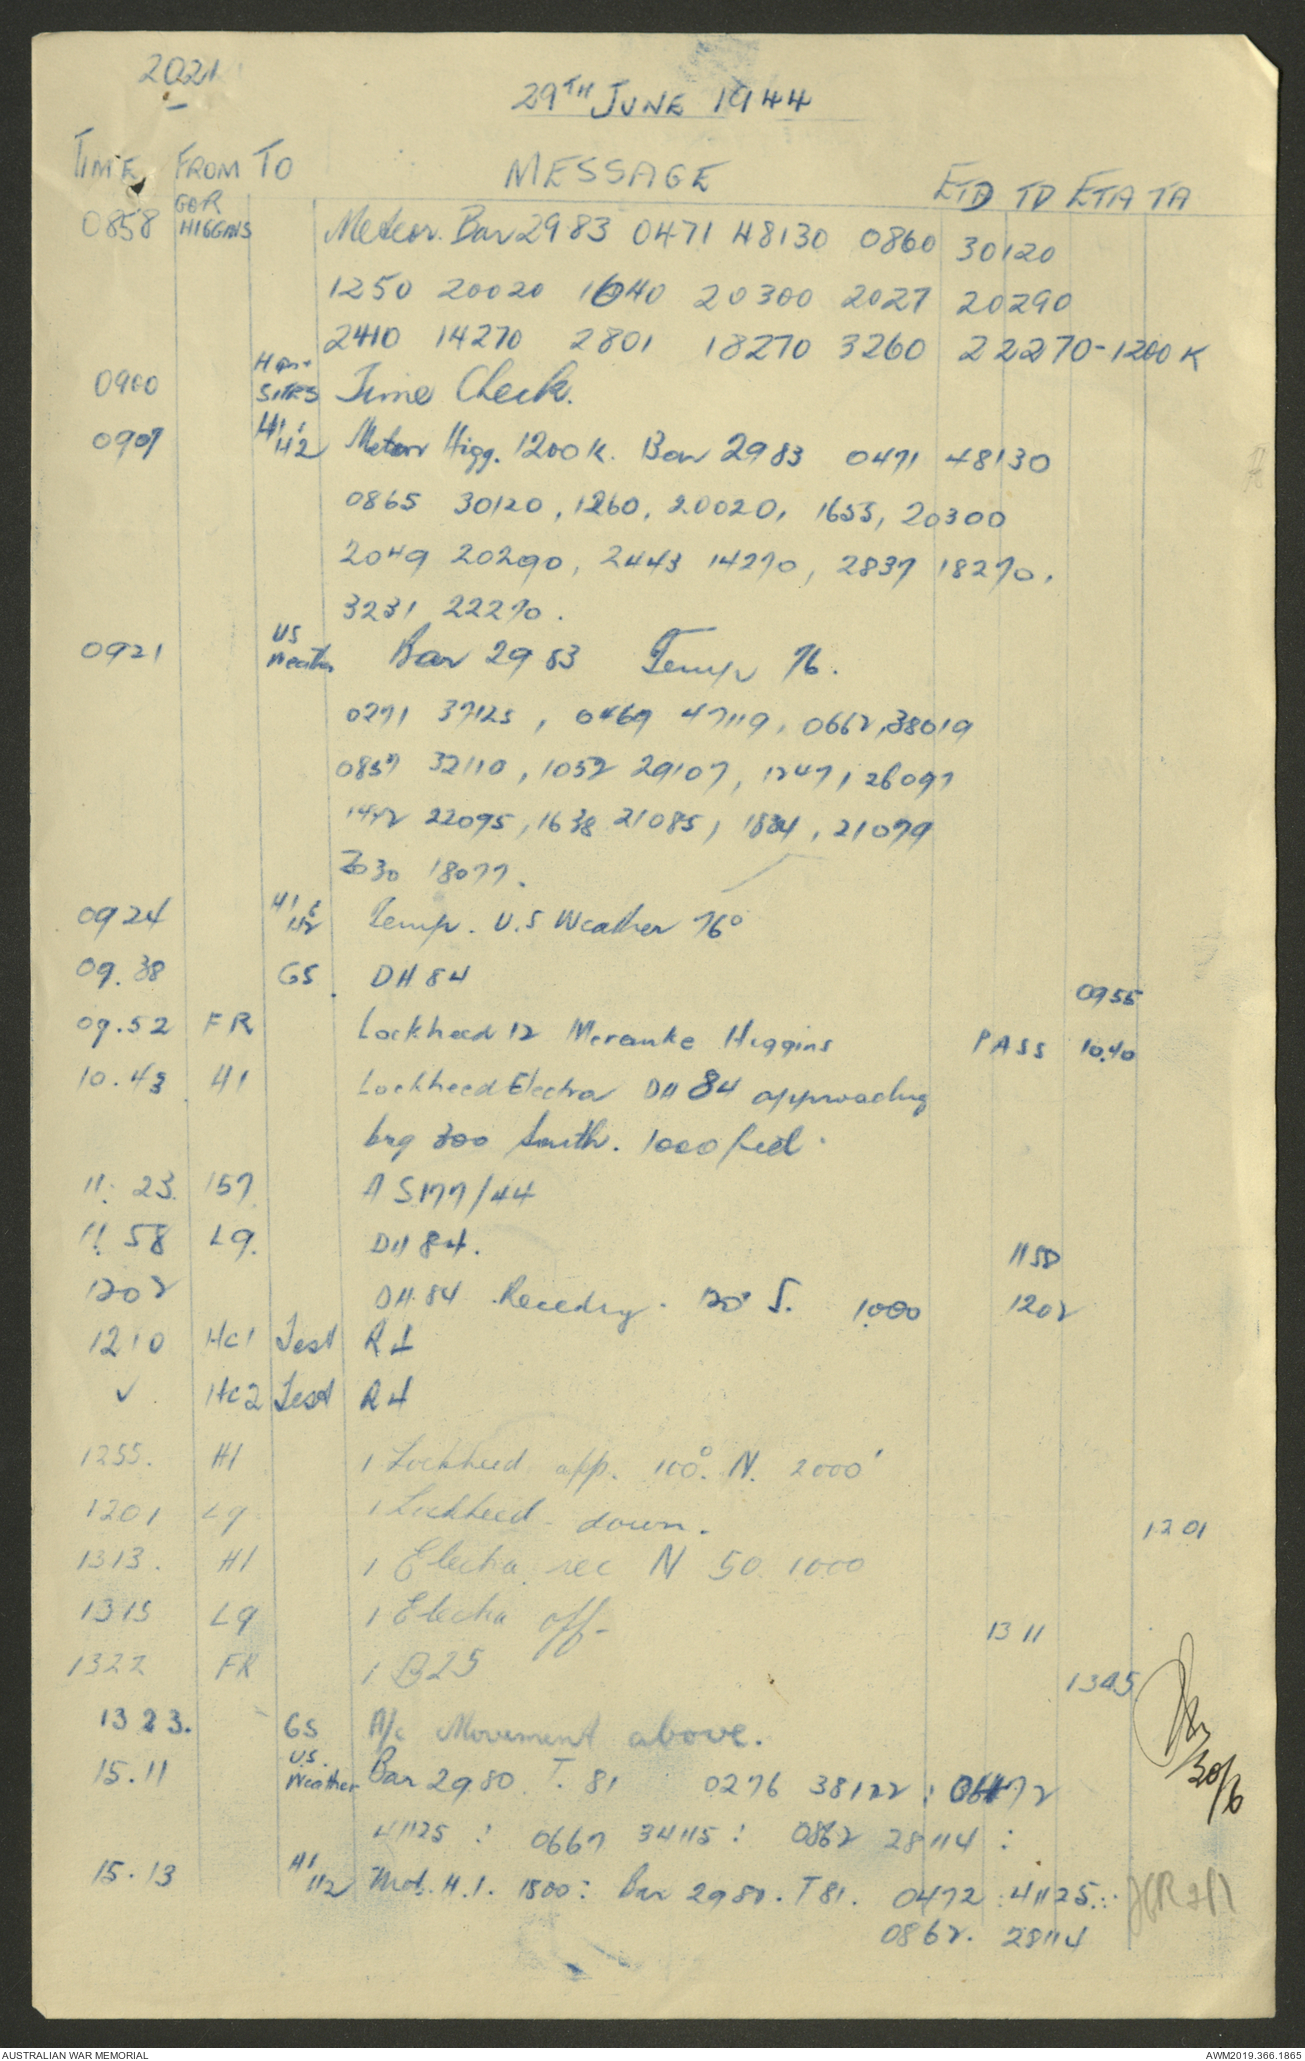 2021
29TH JUNE 1944
TIME FROM TO MESSAGE ETD TD ETA TA
0858 GOR HIGGINS Meteor. Bar 2983 0471 48130 0860 30120
1250 20020 1640 20300 2027 20290
2410 14270 2801 18270 3260 22270-1200K
0900 SITES Time Check.
0907 H1 & H2 Meteor Higg. 1200K. Bar 2983 0471 48130
0865 30120, 1260, 20020, 1655, 20300
2049 20290, 2443 14270, 2837 18270,
3231 22270.
0921 US Weather Bar 2983 Temp 76.
0271 37125, 0467 47119, 0662, 38019
0857 32110, 1052 29107, 1247, 26097
1442 22095, 1638 21085, 1834, 21079
2030 18077.
0924 H1 & H2 Temp. U.S Weather 76°
09.38 GS DH84 0955
09.52 FR Lockheed 12 Merauke Higgins PASS 10.40
10.43 H1 Lockheed Electra DH 84 approaching
brg 300 South. 1000 feet.
11.23. 157. A S177/44
11.58 L9. DH 84. 1158
1202 DH.84 Receding. 120° S. 1000 1202
1210 Hc1 Test R4
✓ Hc2 Test R4
1255. H1 1 Lockheed app. 100°. N. 2000'
1201 L9 1 Lockheed - down. 1201
1313. H1 1 Electra rec N 50 1000
1315 L9 1 Electra off- 1311
1322 FR 1 B25 1345
1323. GS A/c Movement above.
15.11 U.S. Weather Bar 2980 T. 81 0276 38122 : 0472
41125 : 0667 34115 : 0862 28114 :
15.13 H1 H2 Met. H.1. 1500: Bar 2980. T81. 0472 : 41125.:
0862. 28114
30/6
AUSTRALIAN WAR MEMORIAL
AWM2019.366.1865